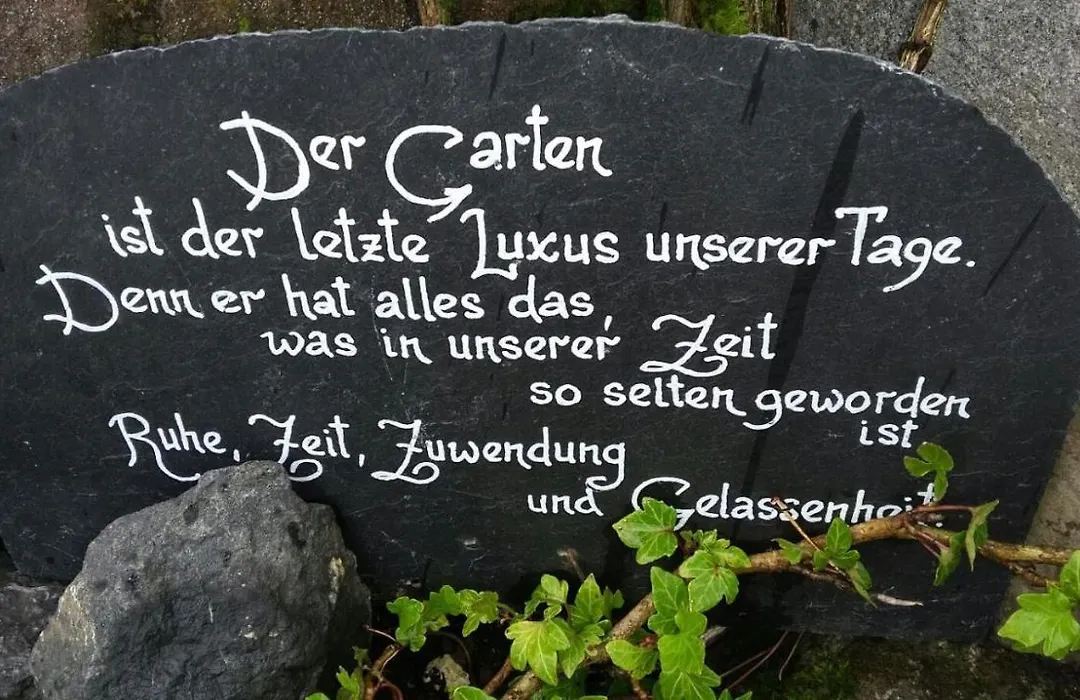 Der Garten
ist der letzte Luxus unserer Tage.
Denn er hat alles das,
was in unserer Zeit
so selten geworden
ist
Ruhe, Zeit, Zuwendung
und Gelassenheit.